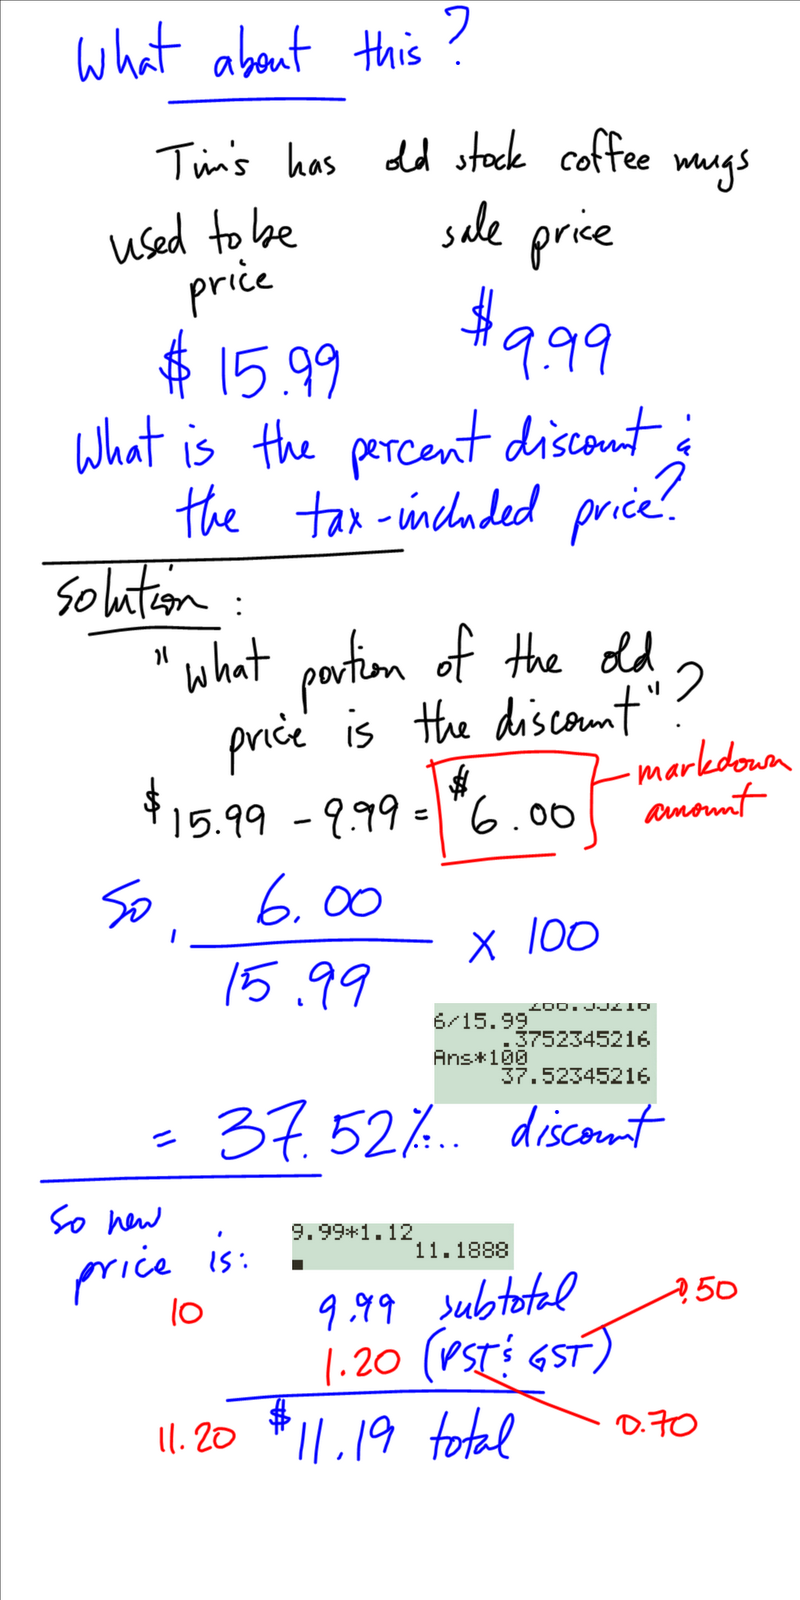 What about this?
Tim's has old stock coffee mugs
used to be sale price
price
$ 15.99 $9.99
What is the percent discount &
the tax-included price?
Solution :
"What portion of the old
price is the discount"?
$15.99 - 9.99 = $6.00 markdown
amount
So, 6.00
15.99 x 100
6/15.99
.3752345216
Ans*100
37.52345216
= 37.52%... discount
So new
price is:
9.99*1.12
11.1888
10 9.99 subtotal 0.50
1.20 (PST & GST)
11.20 $11.19 total 0.70